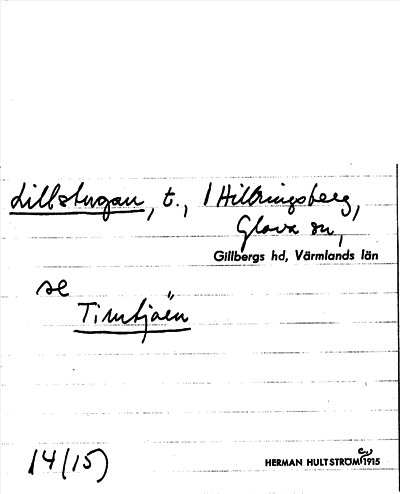 Lillstugan, t., / Hillringsberg,
Glava sn,
Gillbergs hd, Värmlands län
se
Timtjäen
14(15)
HERMAN HULTSTRÖM 1915